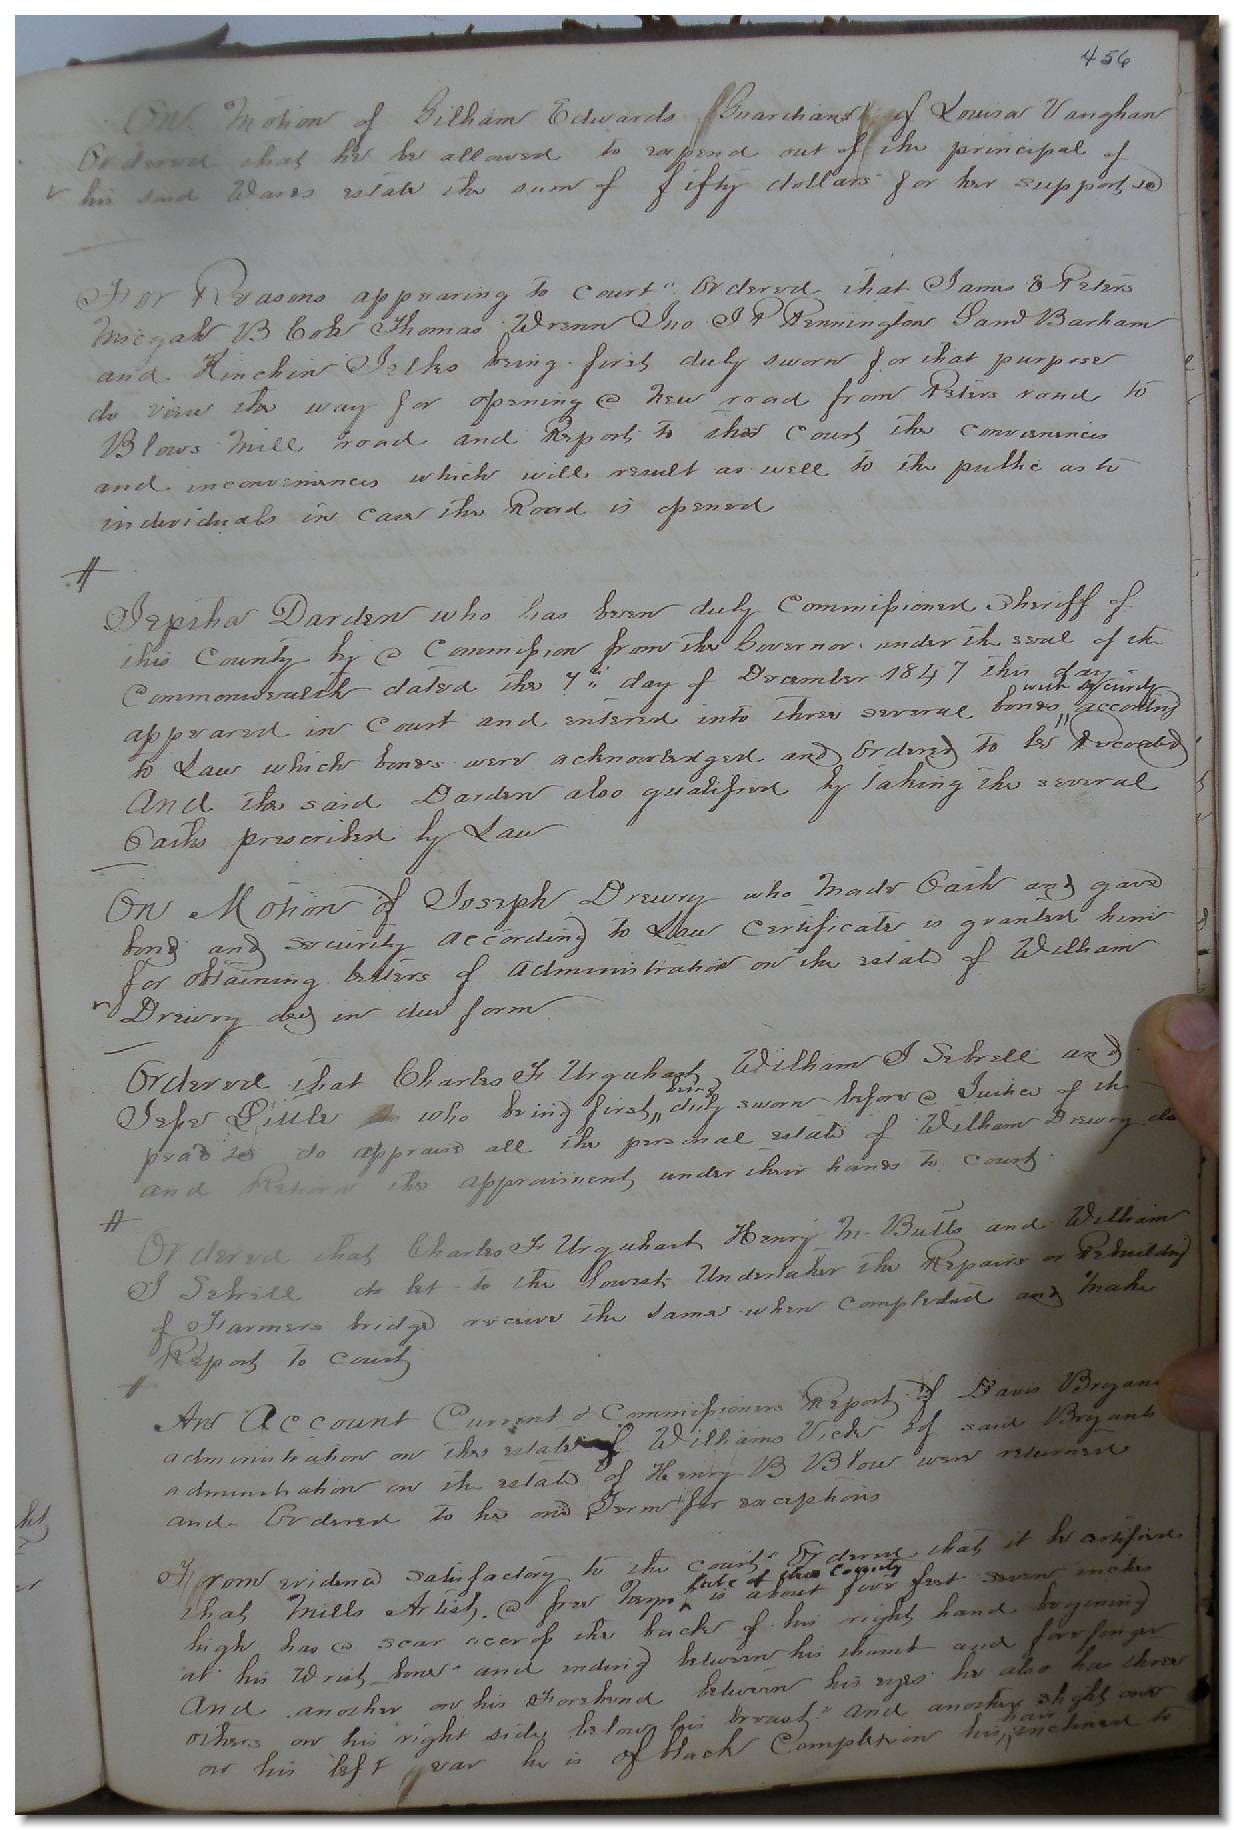 456
On Motion of Gilham Edwards Guardian of Louisa Vaughan
Ordered that he be allowed to expend out of the principal of
his said Wards estate the sum of fifty dollars for her support &c
For Reasons appearing to court" Ordered that James E Peters
Micajah B Cok Thomas Wrenn Jno J R Pennington Saml Barham
and Hinchin Jelks being first duly sworn for that purpose
do view the way for opening a new road from Peters road to
Blows Mill road and Report to this Court the conveniences
and inconveniences which will result as well to the public as to
individuals in case the Road is opened
Jeptha Darden who has been duly Commissioned Sheriff of
this County by a Commission from the Governor under the seal of the
Commonwealth dated the 7" day of December 1847 this day
appeared in Court and entered into three several bonds with security according
to Law which bonds were acknowledged and Ordered to be Recorded
And the said Darden also qualified by taking the several
Oaths prescribed by Law
On Motion of Joseph Drewry who made Oath and gave
bond and security according to Law Certificate is granted him
for obtaining letters of administration on the estate of William
Drewry decd in due form
Ordered that Charles F Urquhart William J Sebrell and
Jesse Little who being first being duly sworn before a Justice of the
peace do appraise all the personal estate of William Drewry
and Return the appraisment under their hands to court
Ordered that Charles F Urquhart Henry M. Butts and William
J Sebrell do let to the lowest Undertaker the Repairs or Rebuilding
of Farmers bridge receive the same when completed and make
Report to court
An Account Current & Commissioners Report of Davis Bryant
administration on the estate of Williams Vick of said Bryants
administration on the estate of Henry B Blow were returned
and Ordered to lie one Term for exceptions
From evidence satisfactory to the court" Ordered that it be certified
that Mills Artist a free Negro late of this County is about five feet seven inches
high has a scar accross the back of his right hand begining
at his Wrist bone and ending between his thumb and forefinger
And another on his Forehead between his eyes he also has three
others on his right side below his breast" And another slight one
on his left ear he is of black Complexion his hair inclined to